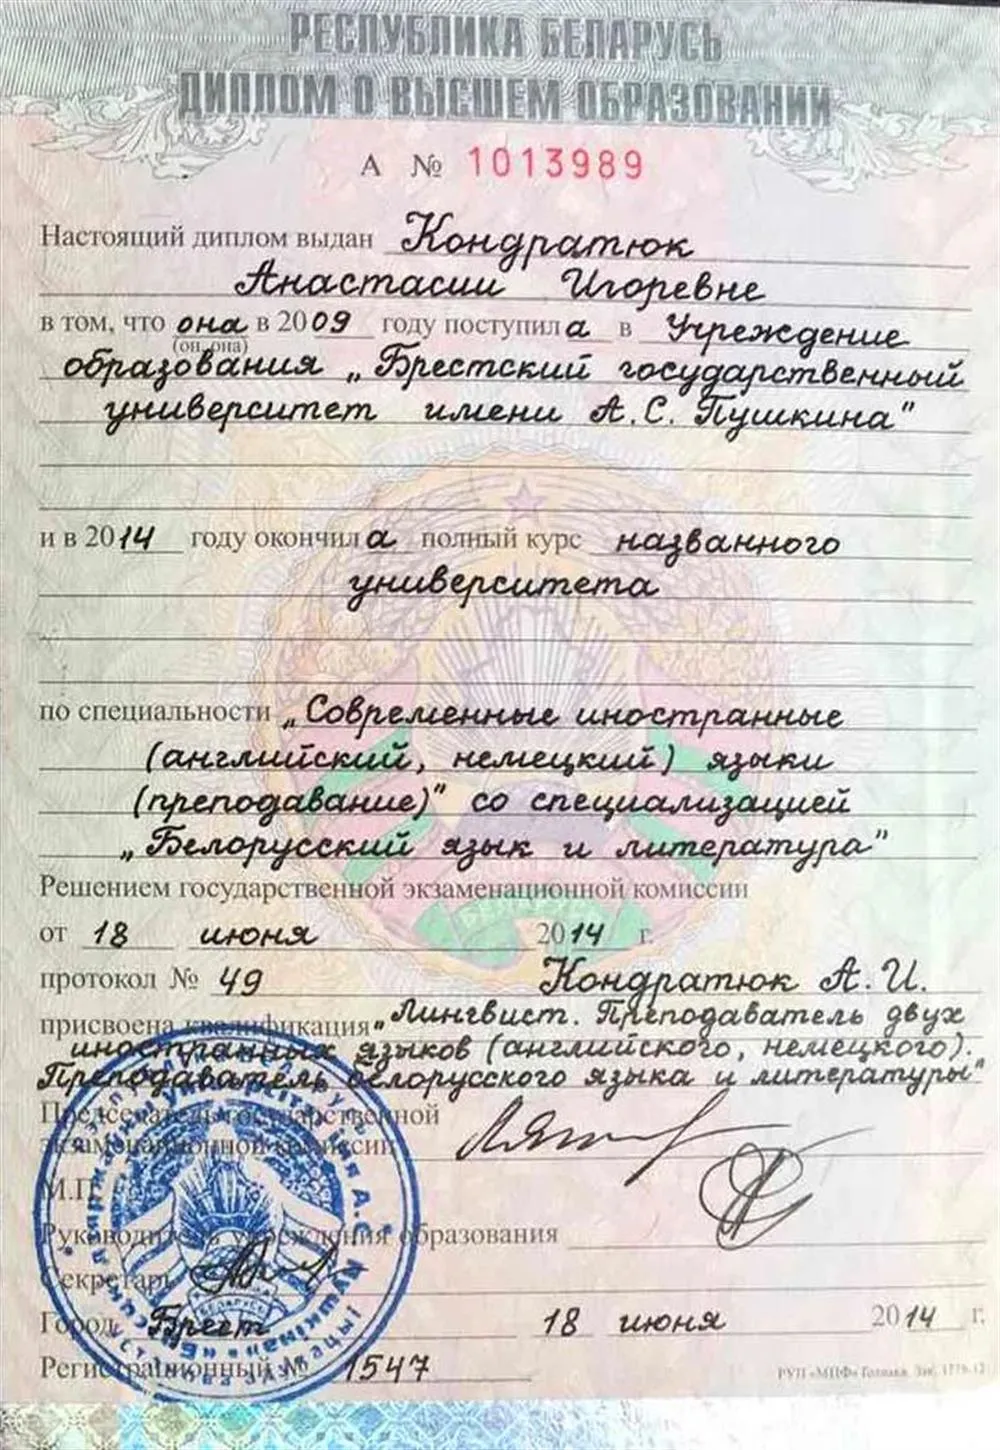 РЕСПУБЛИКА БЕЛАРУСЬ
ДИПЛОМ О ВЫСШЕМ ОБРАЗОВАНИИ
А № 1013989
Настоящий диплом выдан Кондратюк
Анастасии Игоревне
в том, что она в 2009 году поступила в Учреждение
(он, она)
образования „Брестский государственный
университет имени А.С. Пушкина"
и в 2014 году окончила полный курс названного
университета
по специальности „Современные иностранные
(английский, немецкий) языки
(преподавание)" со специализацией
„Белорусский язык и литература"
Решением государственной экзаменационной комиссии
от 18 июня 2014 г.
протокол № 49 Кондратюк А.И.
присвоена квалификация „Лингвист. Преподаватель двух
иностранных языков (английского, немецкого).
Преподаватель белорусского языка и литературы"
Председатель государственной
экзаменационной комиссии
М.П.
Руководитель учреждения образования
Секретарь
Город Брест 18 июня 2014 г.
Регистрационный № 1547
РУП «МПФ» Гознака. Зак. 1779-12